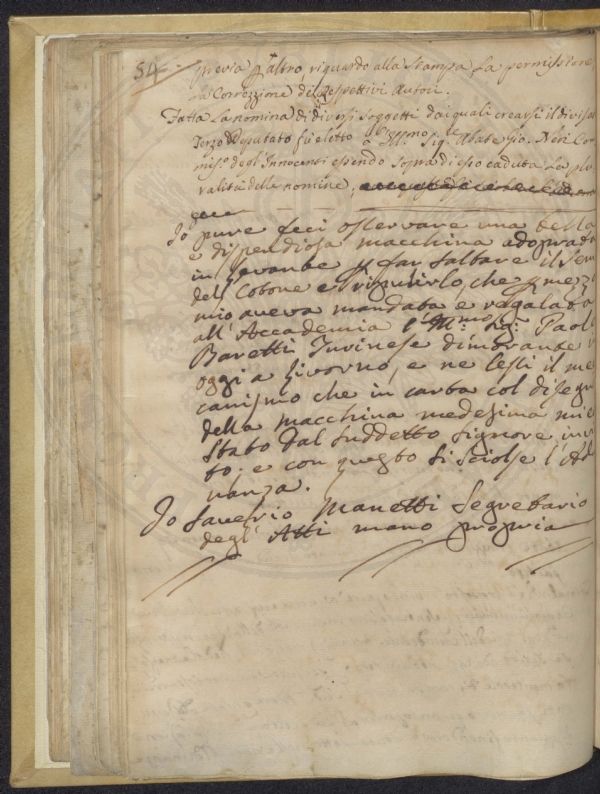 54
previa p altro, riguardo alla Stampa La permissione
La Correzzione de' Respettivi Autori.
Fatta La nomina di diversi Soggetti dai quali crearsi il divisa
Terzo Deputato fù eletto Sig.e Abate Gio. Neri Com
mis.o degl'Innocenti essendo Sopra di esso caduta La plu
ralità delle nomine;
Io pure feci osservare una bella
e dispendiosa macchina adoprata
in Levante p far saltare il Sem
del Cotone e ripulirlo, che p mezz
mio aveva mandata e regalata
all'Accademia l'Ill.mo Sig.r Paol
Baretti Turinese dimorante
oggi a Livorno, e ne lessi il me
canismo che in carta col disegn
della macchina medesima mi e
stato dal suddetto Signore invi
to; e con questo si sciolse l'Ad
nanza.
Io Saverio Manetti Segretario
degl'Atti mano propria